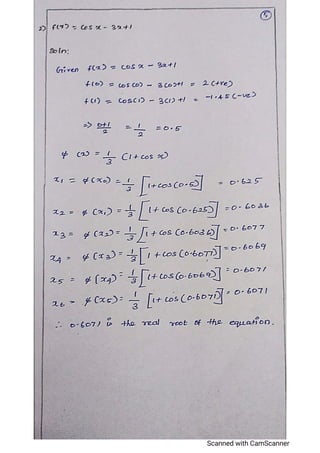 5
2) f(x) = cos x - 3x+1
Soln:
Given f(x) = cos x - 3x+1
f(0) = cos(0) - 3(0)+1 = 2 (+ve)
f(1) = cos(1) - 3(1)+1 = -1.45 (-ve)
⇒ 0+1/2 = 1/2 = 0.5
ϕ(x) = 1/3 (1+cos x)
x1 = ϕ(x0) = 1/3 [1+cos(0.5)] = 0.625
x2 = ϕ(x1) = 1/3 [1+cos(0.625)] = 0.6036
x3 = ϕ(x2) = 1/3 [1+cos(0.6036)] = 0.6077
x4 = ϕ(x3) = 1/3 [1+cos(0.6077)] = 0.6069
x5 = ϕ(x4) = 1/3 [1+cos(0.6069)] = 0.6071
x6 = ϕ(x5) = 1/3 [1+cos(0.6071)] = 0.6071
∴ 0.6071 is the real root of the equation.
Scanned with CamScanner